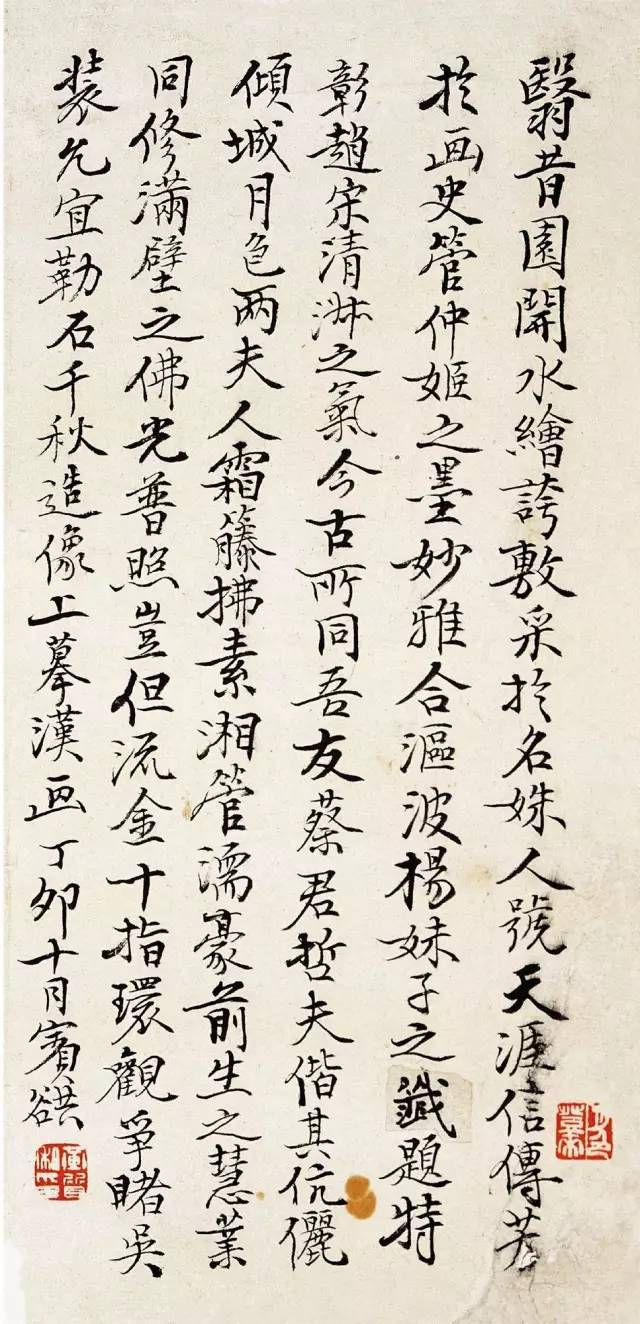 翳昔園開水繪誇敷采於名姝人號天涯信傳芳
於画史管仲姬之墨妙雅合漚波楊妹子之籤題特
彰趙宋清淑之氣今古所同吾友蔡君哲夫偕其伉儷
傾城月色两夫人霜籐拂素湘管濡豪前生之慧業
同修滿壁之佛光普照豈但流金十指環觀爭睹吳
裝允宜勒石千秋造像上摹漢画丁卯十月賓谼